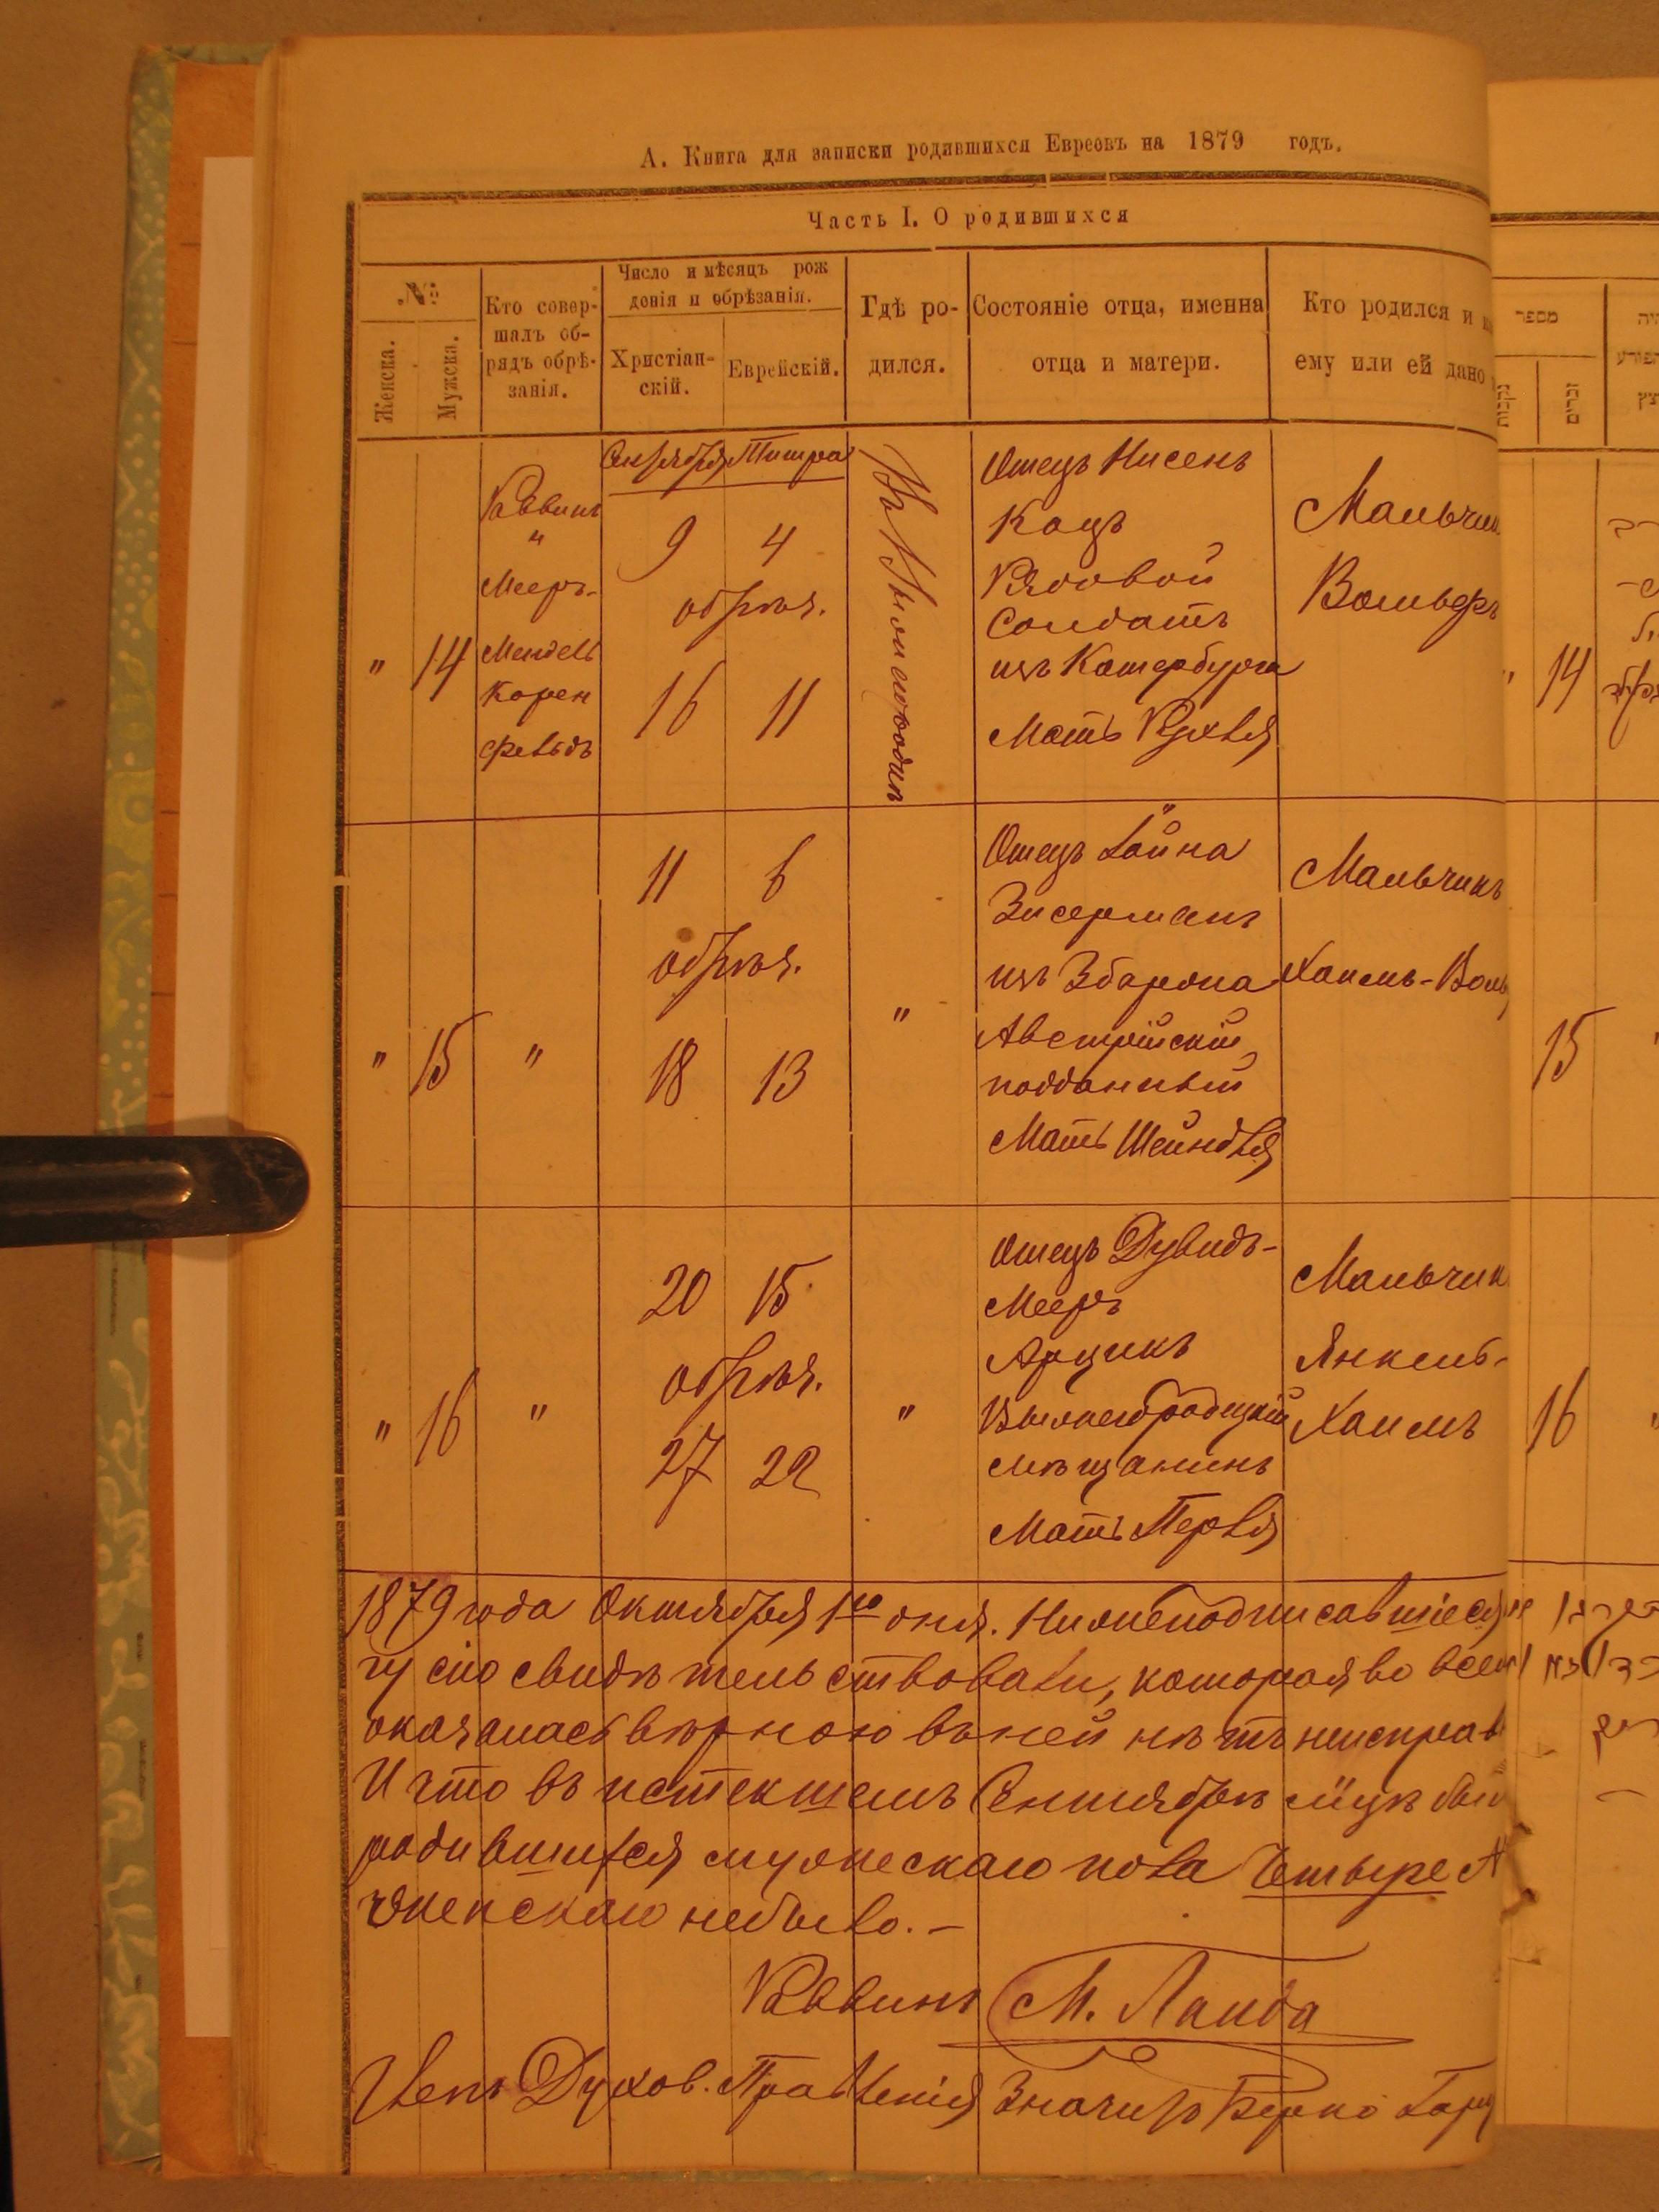 А. Книга для записки родившихся Евреовъ на 1879 годъ.
Часть I. О родившихся
№
Женска.
Мужска.
Кто совер-
шалъ об-
рядъ обрѣ-
занія.
Число и мѣсяцъ рож
денія и обрѣзанія.
Христіан-
скій.
Еврейскій.
Гдѣ ро-
дился.
Состояніе отца, именна
отца и матери.
Кто родился и
ему или ей дано
מספר
נקבות
זכרים
Сентября Тишра
" 14
Раввинъ
"
Мееръ-
Мендель
Корен
фельдъ
9 4
обрѣз.
16 11
Отецъ Нисенъ
Кацъ
Рядовой
Солдатъ
изъ Катербурга
Мать Рухля
Мальчик
Вольфъ
14
" 15 "
11 6
обрѣз.
18 13
"
Отецъ Іойна
Зисерманъ
изъ Збаража
Австрійскій
подданный
Мать Шейндля
Мальчикъ
Хаимъ-Воль
15
" 16 "
20 15
обрѣз.
27 22
"
Отецъ Дувидъ-
Мееръ
Арцикъ
Вышегородецкій
мѣщанинъ
Мать Перля
Мальчик
Янкель-
Хаимъ
16
1879 года Октября 1го дня. Нижеподписавшіеся
гу сію свидѣтельствовали, которая во всем
оказалась вѣрною въ ней нѣтъ неисправ
И что въ истекшемъ Сентябрѣ мцѣ было
родившихся мужескаго пола Четыре А
женскаго небыло. —
Раввинъ М. Ланда
Членъ Духов. Правленія Берко